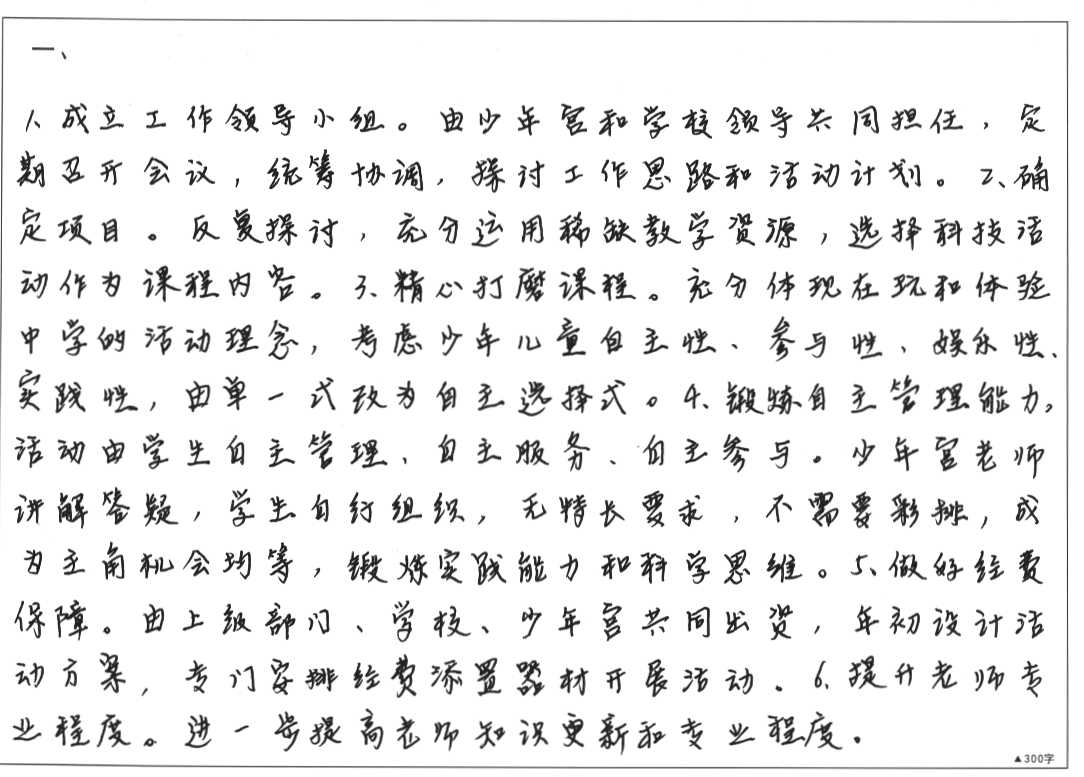 一、
1、成立工作领导小组。由少年宫和学校领导共同担任，定
期召开会议，统筹协调，探讨工作思路和活动计划。2、确
定项目。反复探讨，充分运用稀缺教学资源，选择科技活
动作为课程内容。3、精心打磨课程。充分体现在玩和体验
中学的活动理念，考虑少年儿童自主性、参与性、娱乐性、
实践性，由单一式改为自主选择式。4、锻炼自主管理能力。
活动由学生自主管理、自主服务、自主参与。少年宫老师
讲解答疑，学生自行组织，无特长要求，不需要彩排，成
为主角机会均等，锻炼实践能力和科学思维。5、做好经费
保障。由上级部门、学校、少年宫共同出资，年初设计活
动方案，专门安排经费添置器材开展活动。6、提升老师专
业程度。进一步提高老师知识更新和专业程度。
▲300字